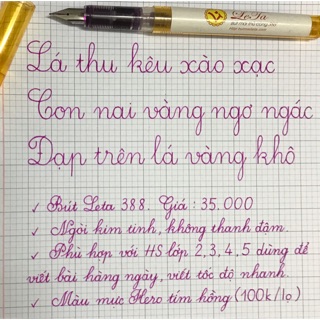 LeTa
Lá thu kêu xào xạc
Con nai vàng ngơ ngác
Đạp trên lá vàng khô
✓ Bút Leta 388. Giá: 35.000
✓ Ngòi kim tinh, không thanh đậm.
✓ Phù hợp với HS lớp 2, 3, 4, 5 dùng để
viết bài hàng ngày, viết tốc độ nhanh.
✓ Màu mực Hero tím hồng (100k/lọ)